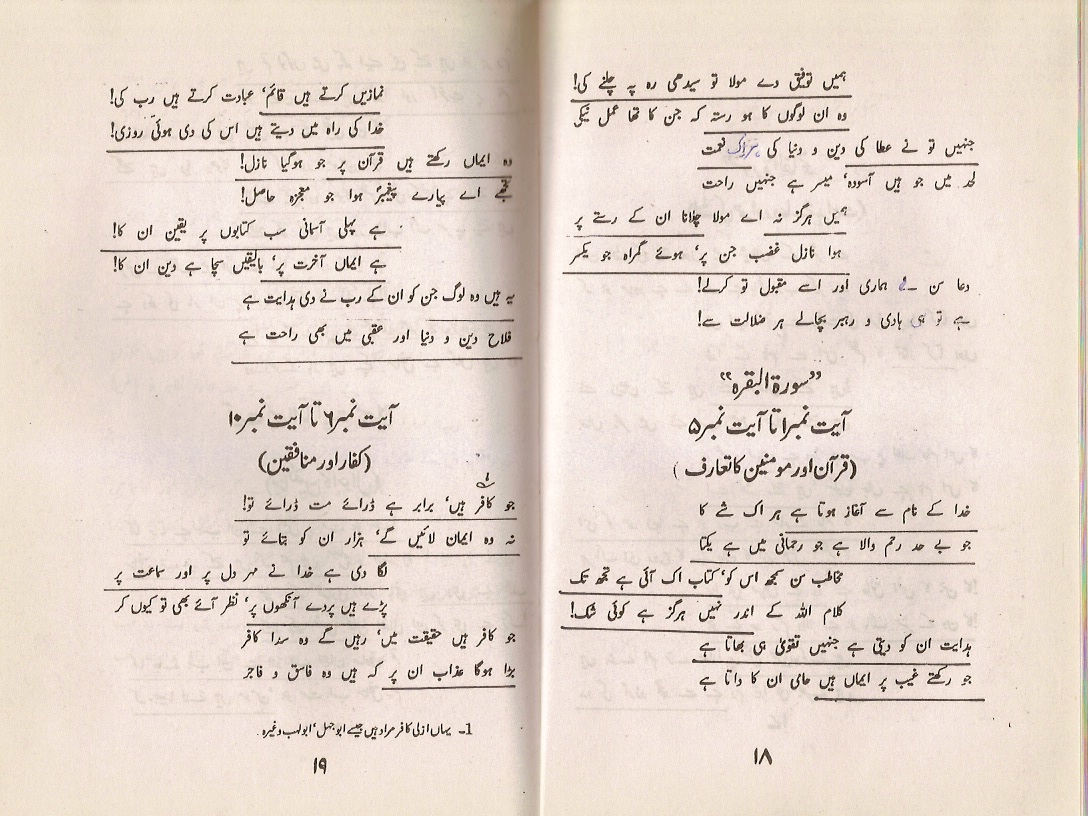 ہمیں توفیق دے مولا تو سیدھی رہ پہ چلنے کی!
وہ ان لوگوں کا ہو رستہ کہ جن کا تھا عمل نیکی
جنہیں تو نے عطا کی دین و دنیا کی ہر اک نعمت
لحد میں جو ہیں آسودہ، میسر ہے جنہیں راحت
ہمیں ہرگز نہ اے مولا چلانا ان کے رستے پر
ہوا نازل غضب جن پر، ہوئے گمراہ جو یکسر
دعا سن لے ہماری اور اسے مقبول تو کرلے!
ہے تو ہی ہادی و رہبر بچالے ہر ضلالت سے!
”سورۃ البقرہ“
آیت نمبر ۱ تا آیت نمبر ۵
(قرآن اور مومنین کا تعارف)
خدا کے نام سے آغاز ہوتا ہے ہر اک شے کا
جو بے حد رحم والا ہے جو رحمانی میں ہے یکتا
مخاطب سن سمجھ اس کو، کتاب اک آئی ہے تجھ تک
کلام اللہ کے اندر نہیں ہرگز ہے کوئی شک!
ہدایت ان کو دیتی ہے جنہیں تقویٰ ہی بھاتا ہے
جو رکھتے غیب پر ایماں ہیں حامی ان کا داتا ہے
۱۸
نمازیں کرتے ہیں قائم، عبادت کرتے ہیں رب کی!
خدا کی راہ میں دیتے ہیں اس کی دی ہوئی روزی!
وہ ایماں رکھتے ہیں قرآن پر جو ہوگیا نازل!
تجھے اے پیارے پیغمبرؐ ہوا جو معجزہ حاصل!
ہے پہلی آسمانی سب کتابوں پر یقین ان کا!
ہے ایماں آخرت پر، بالیقیں سچا ہے دین ان کا!
یہ ہیں وہ لوگ جن کو ان کے رب نے دی ہدایت ہے
فلاح دین و دنیا اور عقبیٰ میں بھی راحت ہے
آیت نمبر ۶ تا آیت نمبر ۱۰
(کفار اور منافقین)
جو کافر ہیں، برابر ہے ڈرائے مت ڈرائے تو!
نہ وہ ایمان لائیں گے، ہزار ان کو بتائے تو
لگا دی ہے خدا نے مہر دل پر اور سماعت پر
پڑے ہیں پردے آنکھوں پر، نظر آئے بھی تو کیوں کر
جو کافر ہیں حقیقت میں، رہیں گے وہ سدا کافر
بڑا ہوگا عذاب ان پر کہ ہیں وہ فاسق و فاجر
1۔ یہاں ازلی کافر مراد ہیں جیسے ابو جہل، ابولہب وغیرہ
۱۹